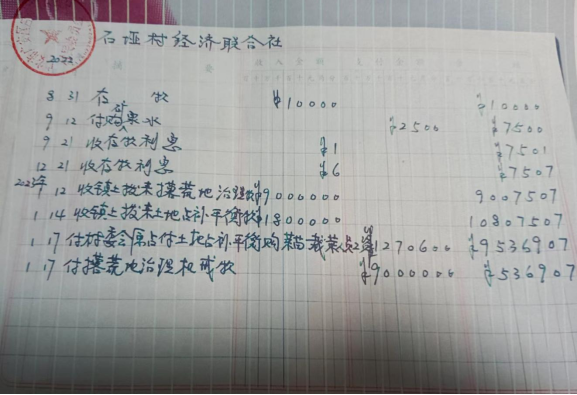 石垭村经济联合社
2022
摘 要 收入金额 支付金额
8 31 存 款 ¥10000 ¥10000
9 12 付购矿泉水 ¥2500 ¥7500
9 21 收存款利息 ¥1 ¥7501
12 21 收存款利息 ¥6 ¥7507
2023年
1 12 收镇上拨来撂荒地治理款¥9000000 9007507
1 14 收镇上拨来土地占补平衡款¥1800000 10807507
1 17 付村委会原占付土地占补平衡购菜苗栽菜 ¥1270600 ¥9536907
1 17 付撂荒地治理 款 ¥9000000 ¥536907